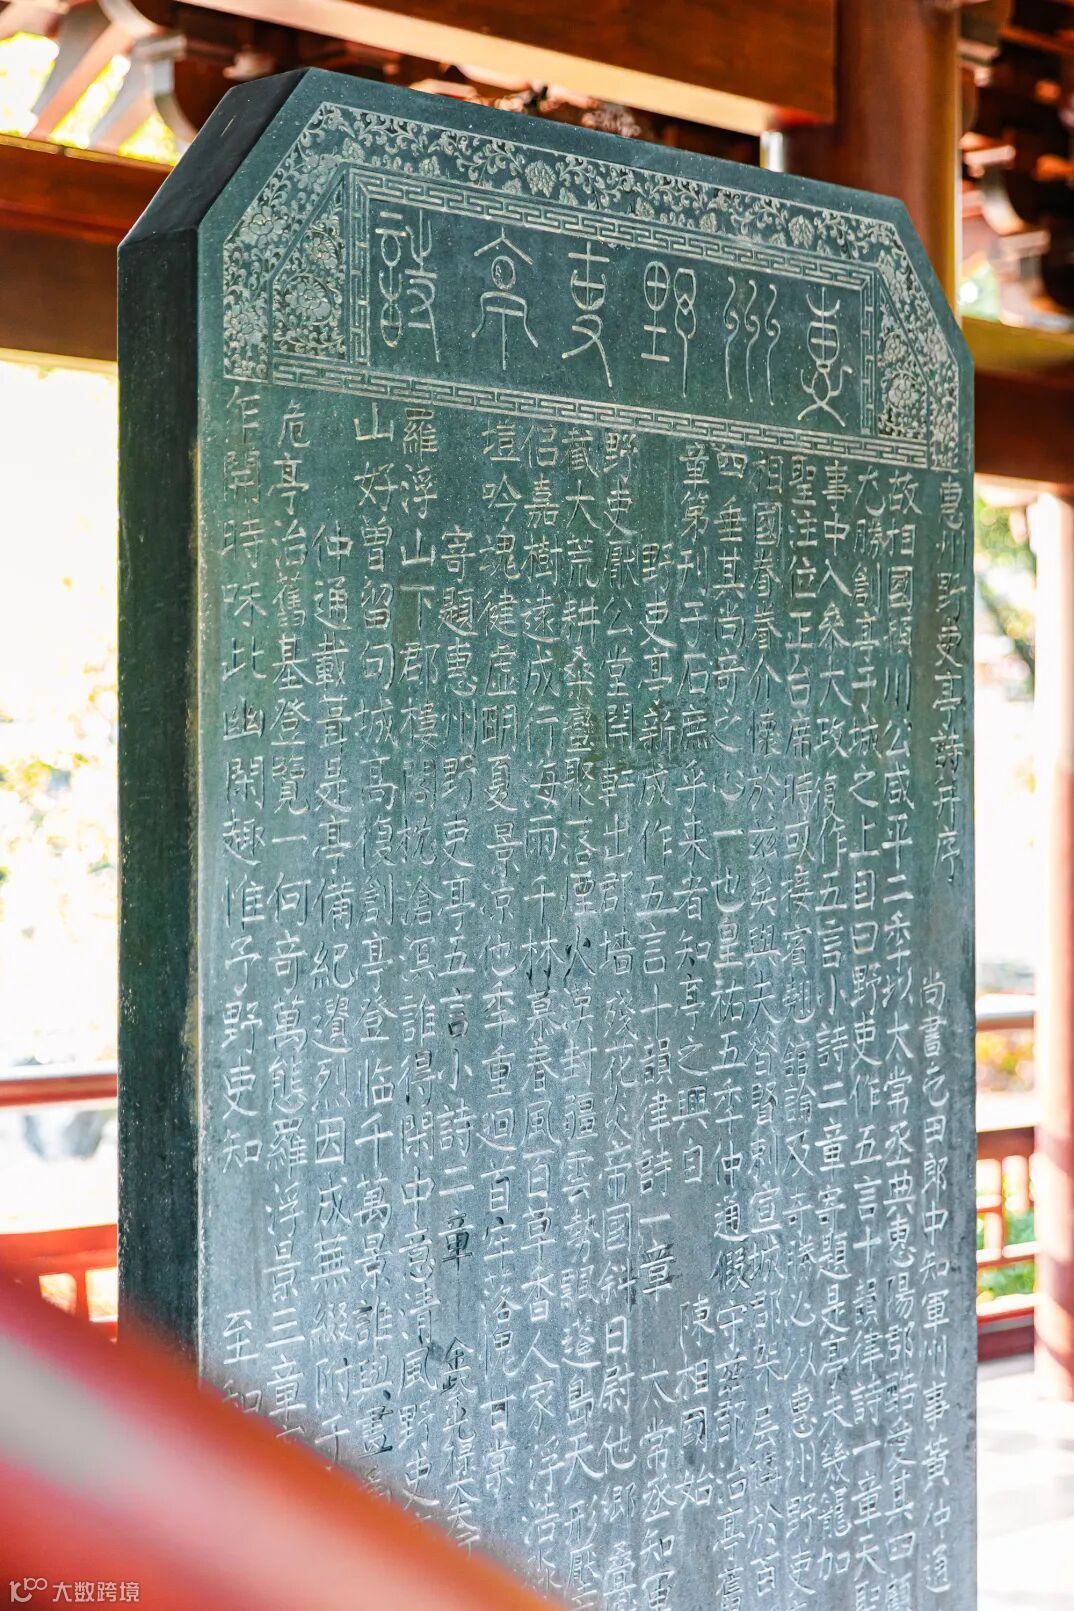 惠州野吏亭詩
惠州野吏亭詩并序 尚書屯田郎中知軍州事黃仲通
故相國潁川公咸平二年以大常丞典惠陽郡時愛其四
尤勝創亭于城之上自曰野吏作五言十韻律詩一章天聖
事中入參大政復作五言小詩二章寄題是亭夫幾寵加
聖主位正台席時或接賓刱舘論及奇勝必以惠州野吏
相國眷眷介懷於茲矣與夫
四垂其尚奇之心一也皇祐五年仲通假守茲郡治亭舊
章第刊于石庶乎来者知亭之興自 陳相國始
野吏亭新成作五言十韻律詩一章 大常丞知軍
野吏厭公堂開軒出郡墻殘花炎帝國斜日尉他鄉
藏大荒耕桑蠻聚落煙火漢封疆雲勢飄蓬島天形壓
侶嘉樹遠成行海雨千林暮春風百草香人家浮浩渺
壇吟魂健虛明夏景凉他年重迴首牢落愧甘棠
寄題惠州野吏亭五言小詩二章 金紫光祿大夫
羅浮山下郡樓閣枕滄溟誰得閑中意清風野吏
山好曽留句城髙復創亭登临千萬景誰與畫
仲通載葺是亭備紀遺烈因成蕪綴附于
危亭治舊基登覽一何奇萬態羅浮景三章
乍開時味比幽閑趣惟予野吏知 至和
大数跨境